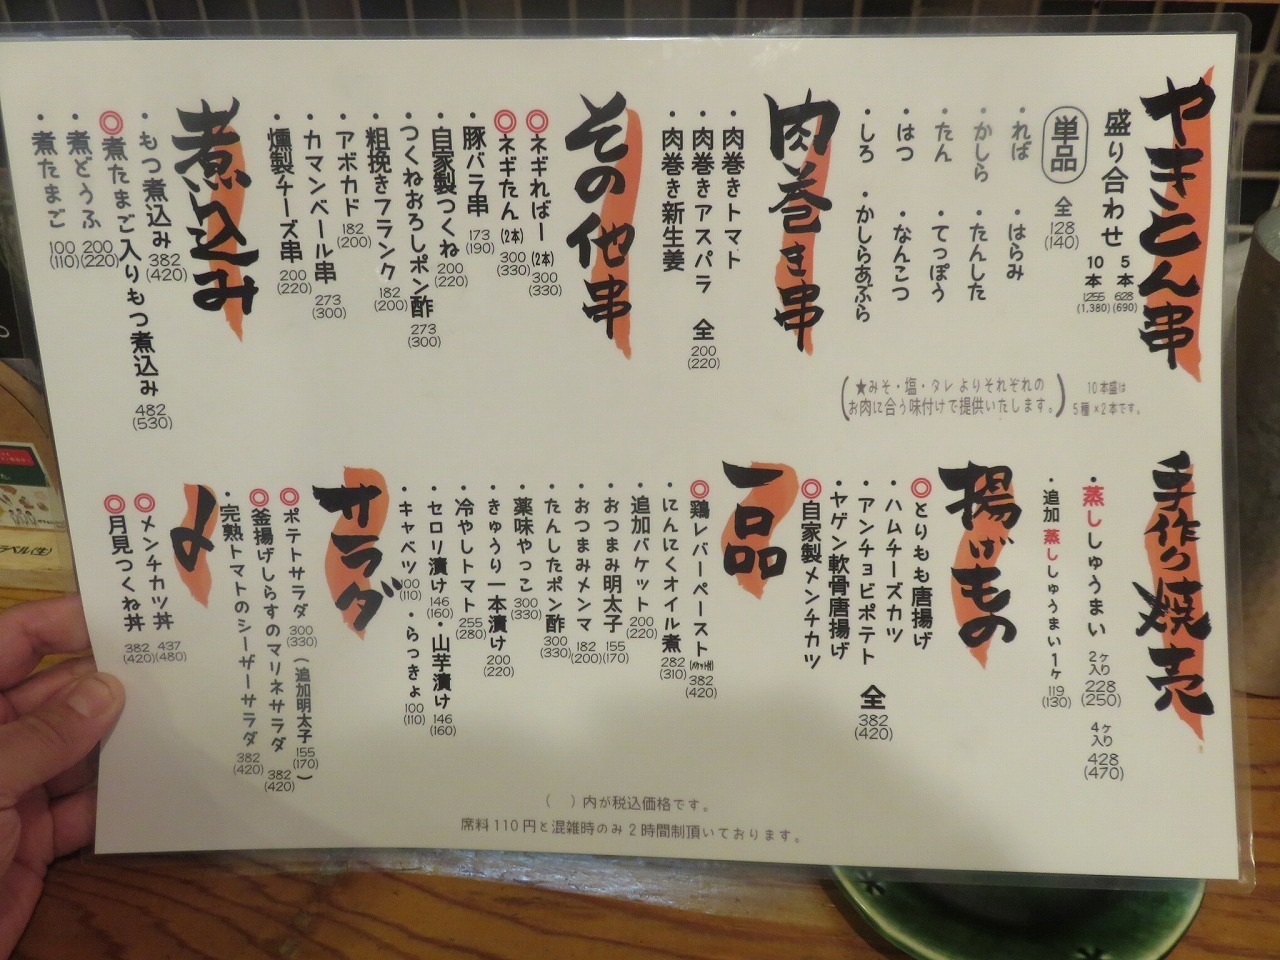 やきとん串
盛り合わせ 5本 628 (690)
10本 1,255 (1,380)
単品 全 128 (140)
・れば ・はらみ
・かしら ・たんした
・たん ・てっぽう
・はつ ・なんこつ
・しろ ・かしらあぶら
(★みそ・塩・タレよりそれぞれの
お肉に合う味付けで提供いたします。)
10本盛は
5種×2本です。
肉巻き串
・肉巻きトマト
・肉巻きアスパラ 全 200 (220)
・肉巻き新生姜
その他串
◎ネギればー(2本) 300 (330)
◎ネギたん(2本) 300 (330)
・豚バラ串 173 (190)
・自家製つくね 200 (220)
・つくねおろしポン酢 273 (300)
・粗挽きフランク 182 (200)
・アボカド 182 (200)
・カマンベール串 273 (300)
・燻製チーズ串 200 (220)
煮込み
・もつ煮込み 382 (420)
◎煮たまご入りもつ煮込み 482 (530)
・煮どうふ 200 (220)
・煮たまご 100 (110)
手作り焼売
・蒸ししゅうまい 2ヶ入り 228 (250) 4ヶ入り 428 (470)
・追加蒸ししゅうまい1ヶ 119 (130)
揚げもの
◎とりもも唐揚げ
・ハムチーズカツ
・アンチョビポテト 全 382 (420)
・ヤゲン軟骨唐揚げ
◎自家製メンチカツ
一品
◎鶏レバーペースト(バケット付) 382 (420)
・にんにくオイル煮 282 (310)
・追加バケット 200 (220)
・おつまみ明太子 155 (170)
・おつまみメンマ 182 (200)
・たんしたポン酢 300 (330)
・薬味やっこ 300 (330)
・きゅうり一本漬け 200 (220)
・冷やしトマト 255 (280)
・セロリ漬け 146 (160) ・山芋漬け 146 (160)
・キャベツ 100 (110) ・らっきょ 100 (110)
サラダ
◎ポテトサラダ 300 (330) (追加明太子 155 (170))
◎釜揚げしらすのマリネサラダ 382 (420)
・完熟トマトのシーザーサラダ 382 (420)
〆
◎メンチカツ丼 437 (480)
◎月見つくね丼 382 (420)
( )内が税込価格です。
席料110円と混雑時のみ2時間制頂いております。